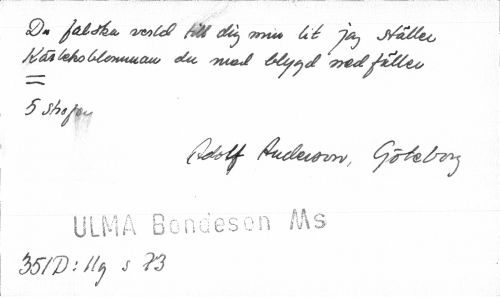 Du falska verld till dig min lit jag ställer
Kärleksblomman du med blygd nedfäller
=
5 strofer
Adolf Anderson, Göteborg
ULMA Bondeson Ms
351D: 11g s 73